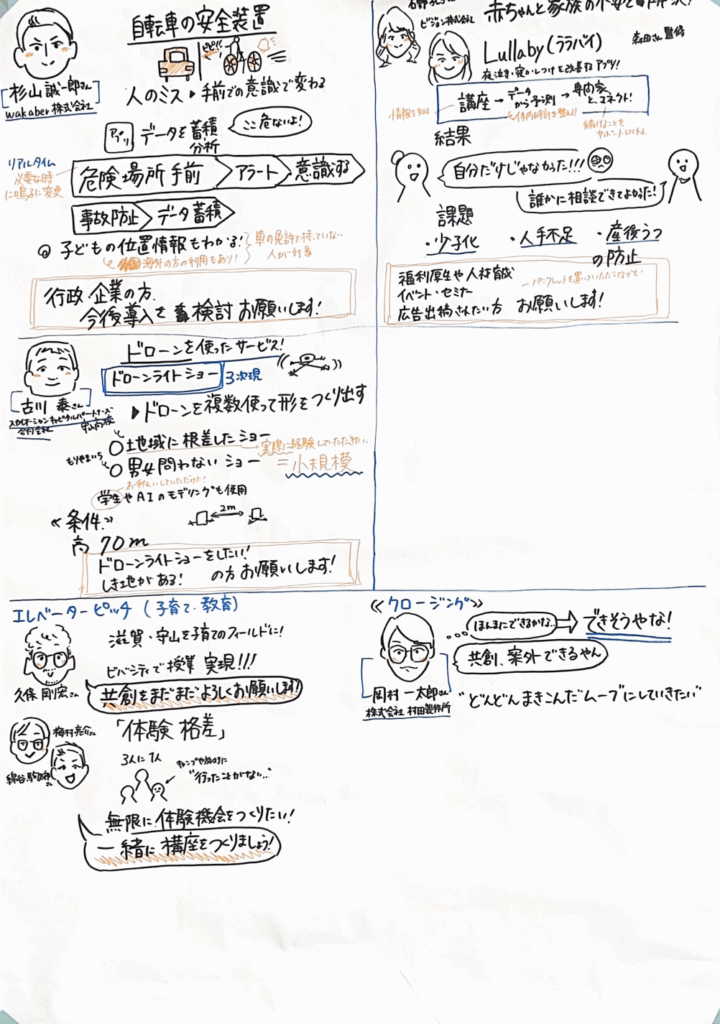 自転車の安全装置
杉山 誠一郎さん
wakaber 株式会社
人のミス ▶ 手前での意識で変わる
アプリ
データを蓄積
分析
ここ危ないよ!
リアルタイム
必要な時
に鳴るに変更
危険場所手前
アラート
意識する
事故防止
データ蓄積
子どもの位置情報もわかる!
車の免許を持っていない
人が対象
海外の方の利用もあり!
行政・企業の方、
今後導入を 検討 お願いします!
ビジョン株式会社
赤ちゃんと家族の不安を
Lullaby(ララバイ)
森田さん 監修
夜泣き・寝かしつけを改善するアプリ!!
講座 → データから予測 → 専門家とコネクト!
結果
自分だけじゃなかった!!!
誰かに相談できてよかった!
課題
・少子化 ・人手不足 ・産後うつ
の防止
福利厚生や人材育成
イベント・セミナー
広告出稿されたい方 お願いします!
パンフレットを置いていただけるでも
ドローンを使ったサービス!
ドローンライトショー
3次現
古川 泰さん
合同会社
▶ドローンを複数使って形をつくり出す
もりやまいち
○地域に根差したショー
実際に経験していただきたい
○男女問わないショー
=小規模
お手伝いしていただけた!
学生やAIのモデリングも使用
《条件》
2m
高 70m
ドローンライトショーをしたい!
しき地がある! の方 お願いします!
エレベーターピッチ (子育て・教育)
久保 剛宏さん
滋賀・守山を子育てのフィールドに!
ビバシティで授業 実現!!!
共創をまだまだよろしくお願いします!
梅村
「体験 格差」
3人に1人
"行ったことがない…"
無限に体験機会をつくりたい!
一緒に講座をつくりましょう!
《クロージング》
岡村 一太郎さん
株式会社 村田製作所
ほんまにできるかな…
できそうやな!
共創、案外できるやん
"どんどんまきこんだムーブにしていきたい"